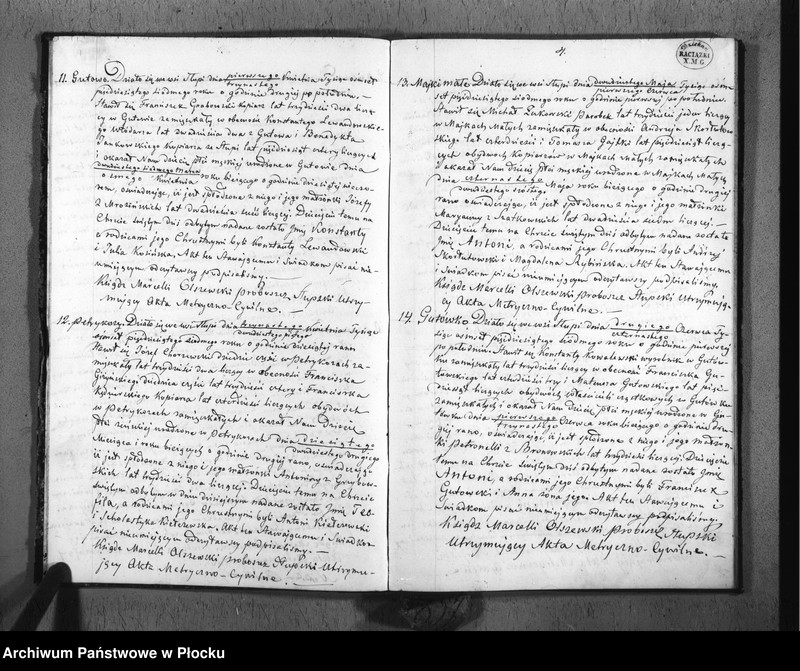 11. Gutowo. Działo się we wsi Słupi dnia pierwszego Kwietnia Tysiąc ośmset
trzynastego
pięćdziesiątego siódmego roku o godzinie drugiej po południu.
Stawił się Franciszek Grabowski kopiarz lat trzydzieści dwa liczą-
cy w Gutowie zamieszkały w obecności Konstantego Lewandowskie-
go lat dwadzieścia dwa z Gutowa i Benedykta
kopiarza ze Słupi lat pięćdziesiąt liczących
i okazał Nam dziecię płci męskiej urodzone w Gutowie dnia
dwudziestego siódmego Marca
ósmego Kwietnia roku bieżącego o godzinie dziesiątej wieczo-
rem, oświadczając, iż jest spłodzone z niego i jego małżonki Józefy
z lat dwadzieścia sześć liczącej. Dziecięciu temu na
Chrzcie świętym dziś odbytym nadane zostało Imię Konstanty
a rodzicami jego Chrzestnymi byli Konstanty Lewandowski
i Julia Kosińska. Akt ten Stawającemu i Świadkom pisać nie-
umiejącym odczytawszy podpisaliśmy.
Ksiądz Marcelli Olszewski Proboszcz Słupski Utrzy-
mujący Akta Metryczno-Cywilne.
12. Petrykozy. Działo się we wsi Słupi dnia Kwietnia Tysiąc
dwudziestego
ośmset pięćdziesiątego siódmego roku o godzinie dziesiątej rano
Stawił się Józef Chorzewski dziedzic części w Petrykozach za-
mieszkały lat trzydzieści dwa liczący w obecności Franciszka
dziedzica części lat trzydzieści cztery i Franciszka
kopiarza lat czterdzieści liczących obydwóch
w Petrykozach zamieszkałych i okazał Nam Dziecię
płci żeńskiej urodzone w Petrykozach dnia dziesiątego
dwudziestego drugiego
Miesiąca i roku bieżących o godzinie drugiej rano, oświadczając
iż jest spłodzone z niego i jego małżonki Antoniny z
lat trzydzieści dwa liczącej. Dziecięciu temu na Chrzcie
świętym odbytym w dniu dzisiejszym nadane zostało Imię Teo-
fila, a rodzicami jego Chrzestnymi byli Antoni Kiełczewski
i Scholastyka Kiełczewska. Akt ten Stawającemu i Świadkom
pisać nieumiejącym odczytawszy podpisaliśmy.
Ksiądz Marcelli Olszewski Proboszcz Słupski Utrzymu-
jący Akta Metryczno-Cywilne
4.
RACIĄŻKI
X.M.G
13. Majki małe. Działo się we wsi Słupi dnia dwudziestego Maja Tysiąc ośm-
pierwszego Czerwca
set pięćdziesiątego siódmego roku o godzinie pierwszej po południu.
Stawił się Michał Żukowski parobek lat trzydzieści jeden liczący
w Majkach Małych zamieszkały w obecności Andrzeja Skorłutow-
skiego lat czterdzieści i Tomasza Gajtki lat pięćdziesiąt liczą-
cych obydwóch kopiarzów w Majkach Małych zamieszkałych
i okazał Nam dziecię płci męskiej urodzone w Majkach Małych
dnia czternastego
dwudziestego szóstego Maja roku bieżącego o godzinie drugiej
rano oświadczając, iż jest spłodzone z niego i jego małżonki
Maryanny z lat dwadzieścia siedm liczącej.
Dziecięciu temu na Chrzcie świętym dziś odbytym nadane zostało
Imię Antoni, a rodzicami jego Chrzestnymi byli Andrzej
Skorłutowski i Magdalena Rybińska. Akt ten Stawającemu
i Świadkom pisać nieumiejącym odczytawszy podpisaliśmy.
Ksiądz Marcelli Olszewski Proboszcz Słupski Utrzymują-
cy Akta Metryczno-Cywilne.
14. Gutówko. Działo się we wsi Słupi dnia drugiego Czerwca Ty-
czternastego
siąc ośmset pięćdziesiątego siódmego roku o godzinie pierwszej
po południu. Stawił się Konstanty Kowalewski wyrobnik w Gutów-
ku zamieszkały lat trzydzieści liczący w obecności Franciszka Gu-
towskiego lat czterdzieści trzy i Mateusza Gutowskiego lat pięć-
dziesiąt liczących obydwóch właścicieli cząstkowych z Gutówka
zamieszkałych i okazał Nam Dziecię płci męskiej urodzone w Gu-
tówku dnia pierwszego
trzynastego Czerwca roku bieżącego o godzinie dru-
giej rano, oświadczając, iż jest spłodzone z niego i jego małżon-
ki Petronelli z Bronowskich lat trzydzieści liczącej. Dziecięciu
temu na Chrzcie świętym dziś odbytym nadane zostało Imię
Antoni, a rodzicami jego Chrzestnymi byli Franciszek
Gutowski i Anna żona jego. Akt ten Stawającemu i
Świadkom pisać nieumiejącym odczytawszy podpisaliśmy.
Ksiądz Marcelli Olszewski Proboszcz Słupski
Utrzymujący Akta Metryczno-Cywilne.
Archiwum Państwowe w Płocku